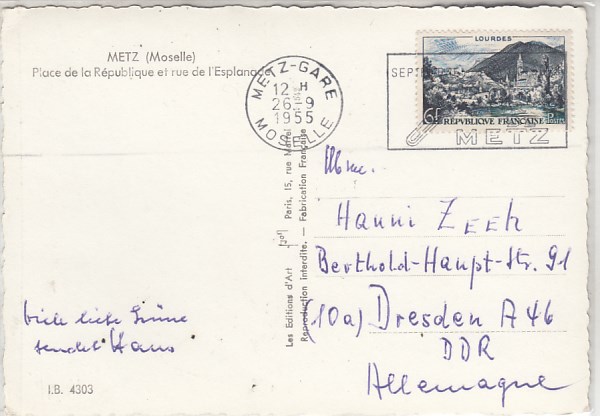 METZ (Moselle)
Place de la République et rue de l'Esplanade
METZ-GARE
12 H
26-9
1955
MOSELLE
SEPT
METZ
LOURDES
6F RÉPUBLIQUE FRANÇAISE Postes
Mme.
Hanni ZEEH
Berthold-Haupt-Str. 91
(10a) Dresden A 46
DDR
Allemagne
viele liebe Grüße
sendet Hans
Les Editions d'Art Paris, 15, rue Martel
Reproduction Interdite. — Fabrication Française
I.B. 4303